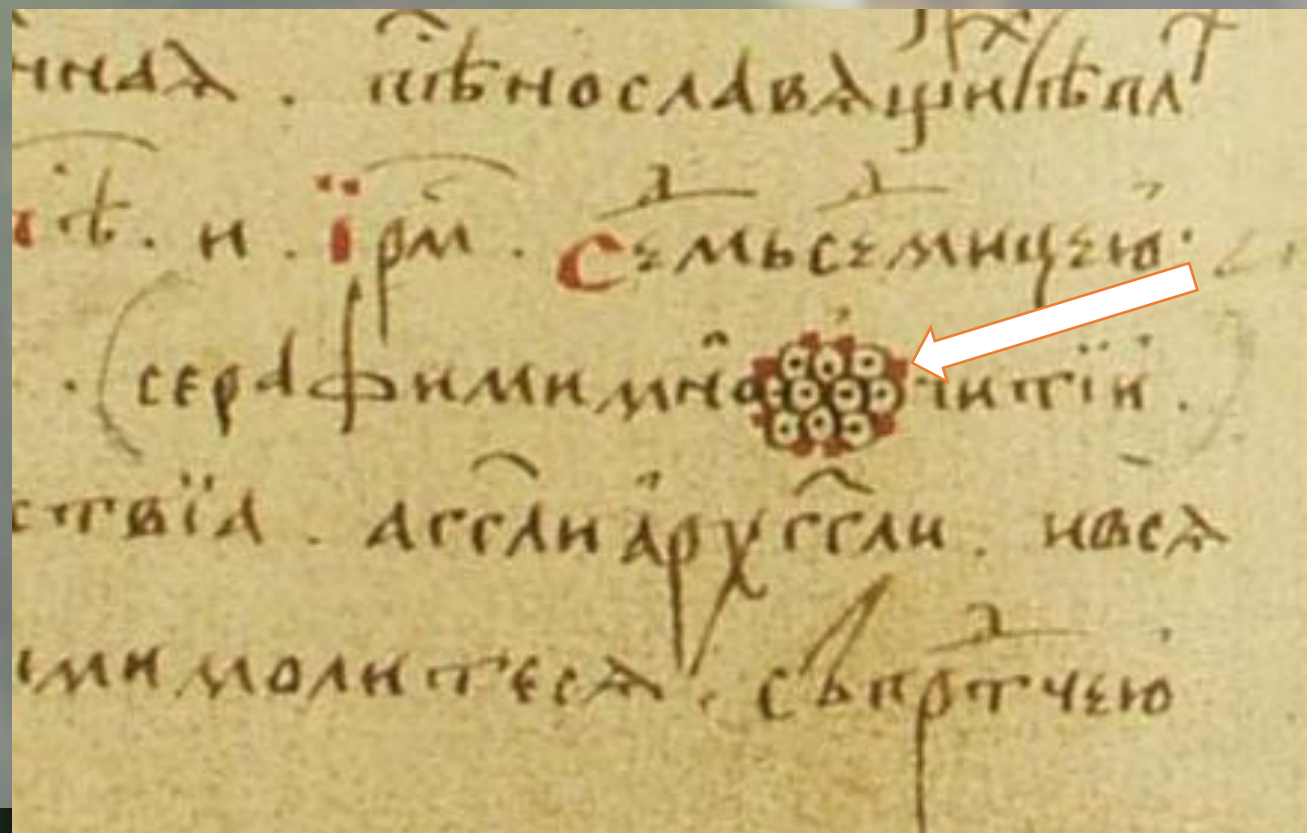 ннаѧ . пѣнославѧщи
ѣ . и . їрм . Сємьсємицєю ·
. (серафими мноꙮчитїи . )
ствїа . аггли архггли . ивсѧ
ими молитесѧ . съпртчєю